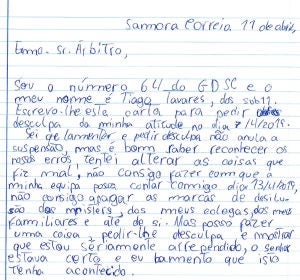 Samora Correia 11 de abril,
Exmo. Sr. Árbitro,
Sou o número 64 do GDSC e o
meu nome é Tiago Tavares, dos sub 11.
Escrevo-lhe esta carta para pedir
desculpa da minha atitude no dia 7/4/2019.
Sei que lamentar e pedir desculpa não anula a
suspensão, mas é bom saber reconhecer os
nossos erros, tentei alterar as coisas que
fiz mal, não consigo fazer com que a
minha equipa possa contar comigo dia 13/4/2019,
não consigo apagar as marcas de desilu-
são dos misters, dos meus colegas, dos meus
familiares e até de si. Mas posso fazer
uma coisa pedir-lhe desculpa e mostrar
que estou seriamente arrependido, o senhor
estava certo e eu lamento que isto
tenha acontecido.